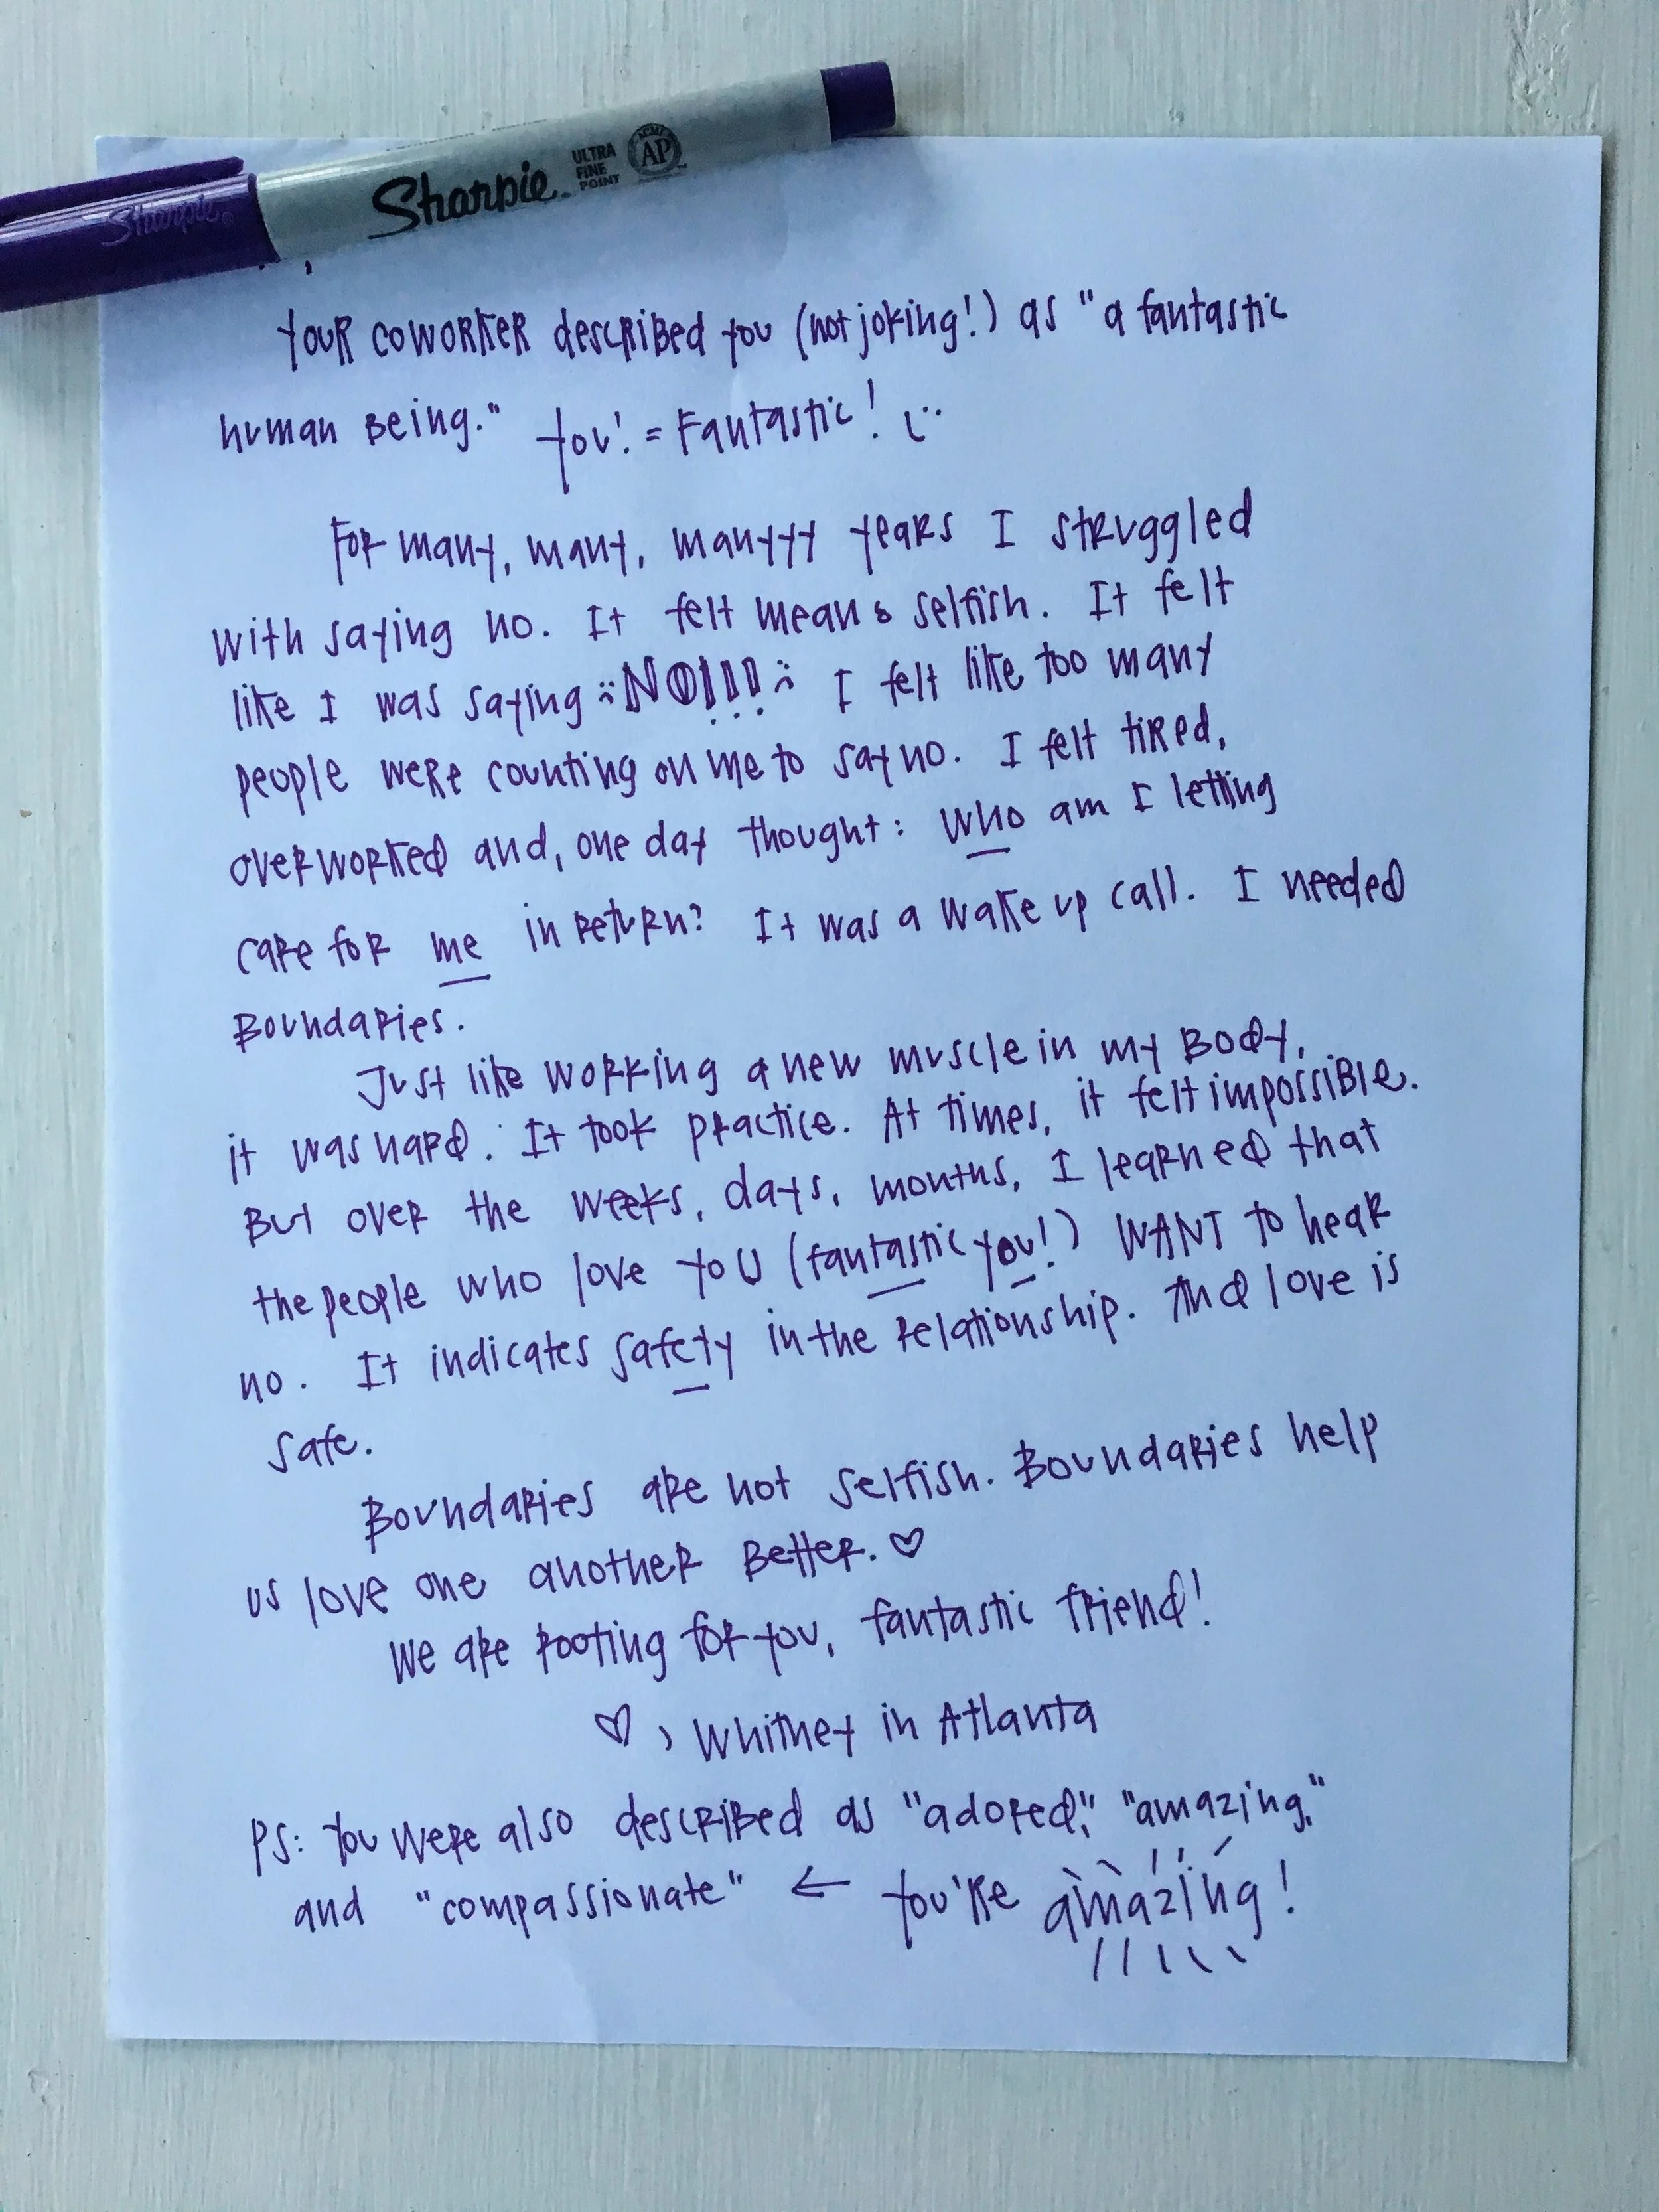 Sharpie®
Sharpie.
ULTRA
FINE
POINT
ACMI
AP
Your coworker described you (not joking!) as "a fantastic
human being." You! = Fantastic! :)
For many, many, manyyy years I struggled
with saying no. It felt mean & selfish. It felt
like I was saying :( NO!!! :( I felt like too many
people were counting on me to say no. I felt tired,
overworked and, one day thought: who am I letting
care for me in return? It was a wake up call. I needed
Boundaries.
Just like working a new muscle in my body,
it was hard. It took practice. At times, it felt impossible.
But over the weeks, days, months, I learned that
the people who love yoU (fantastic you!) WANT to hear
no. It indicates safety in the relationship. And love is
safe.
Boundaries are not selfish. Boundaries help
us love one another better. ♡
We are rooting for you, fantastic friend!
♡, Whitney in Atlanta
PS: You were also described as "adored," "amazing,"
and "compassionate" ← You're amazing!